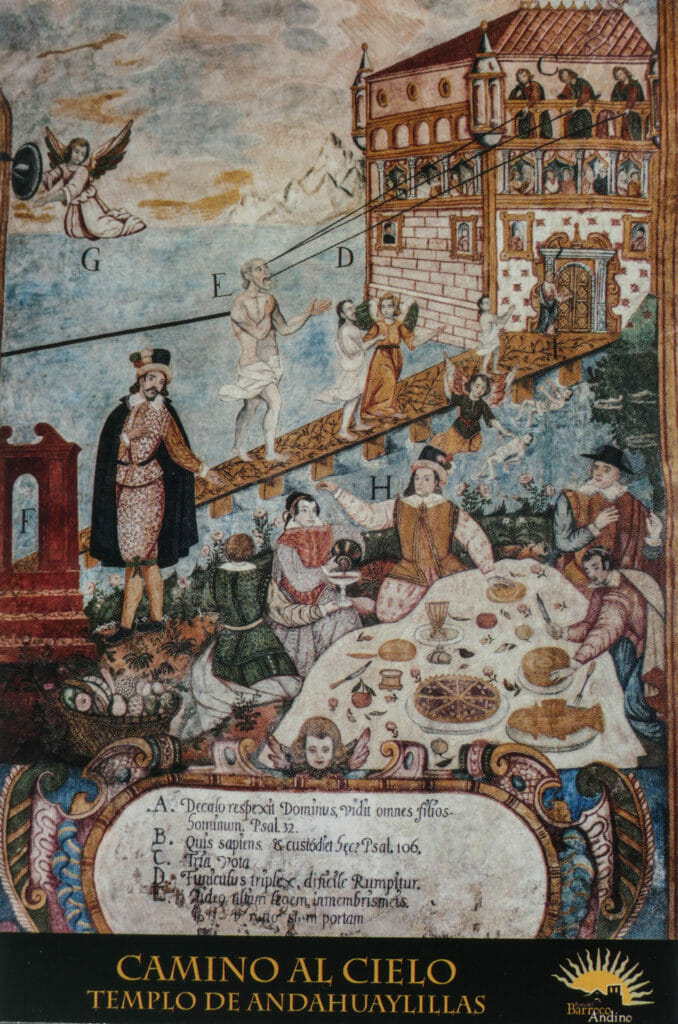 G
E D
I
H
F
A. Decalo respexit Dominus, vidit omnes filios-
hominum. Psal. 32.
B. Quis sapiens, & custodiet hęc? Psal. 106.
C. Tria Vota
D. Funiculus triplex, dificile Rumpitur.
E. legem, inmembrismeis.
portam
CAMINO AL CIELO
TEMPLO DE ANDAHUAYLILLAS
Ruta del
Barroco
Andino